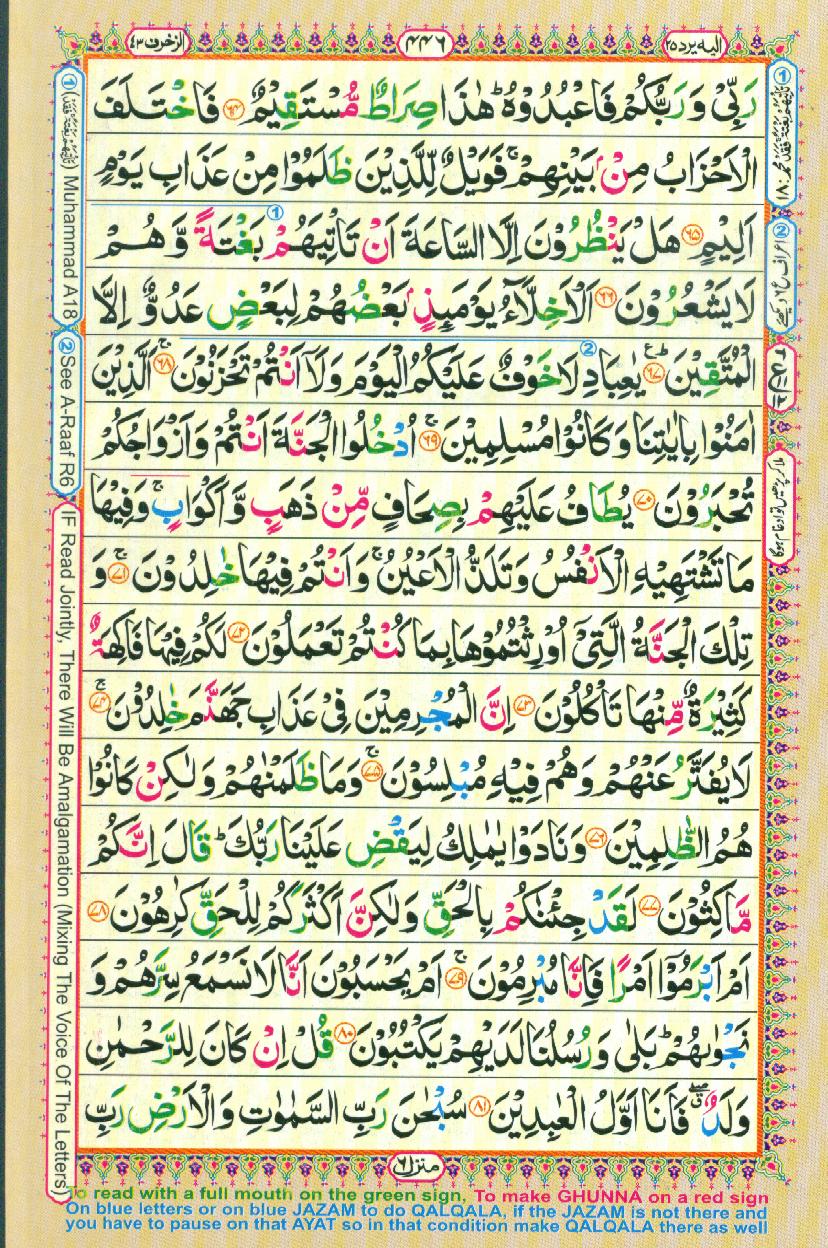 الیه یرد ۲۵
۴۴۶
الزخرف ۴۳
رَبِّیْ وَرَبُّكُمْ فَاعْبُدُوْهُ ؕ هٰذَا صِرَاطٌ مُّسْتَقِیْمٌ ﴿۶۴﴾ فَاخْتَلَفَ
الْاَحْزَابُ مِنْۢ بَیْنِهِمْ ۚ فَوَیْلٌ لِّلَّذِیْنَ ظَلَمُوْا مِنْ عَذَابِ یَوْمٍ
اَلِیْمٍ ﴿۶۵﴾ هَلْ یَنْظُرُوْنَ اِلَّا السَّاعَةَ اَنْ تَاْتِیَهُمْ بَغْتَةً وَّهُمْ
لَا یَشْعُرُوْنَ ﴿۶۶﴾ اَلْاَخِلَّآءُ یَوْمَىِٕذٍۭ بَعْضُهُمْ لِبَعْضٍ عَدُوٌّ اِلَّا
الْمُتَّقِیْنَ ﴿۶۷﴾ یٰعِبَادِ لَا خَوْفٌ عَلَیْكُمُ الْیَوْمَ وَلَاۤ اَنْتُمْ تَحْزَنُوْنَ ﴿۶۸﴾ۚ اَلَّذِیْنَ
اٰمَنُوْا بِاٰیٰتِنَا وَكَانُوْا مُسْلِمِیْنَ ﴿۶۹﴾ۚ اُدْخُلُوا الْجَنَّةَ اَنْتُمْ وَاَزْوَاجُكُمْ
تُحْبَرُوْنَ ﴿۷۰﴾ یُطَافُ عَلَیْهِمْ بِصِحَافٍ مِّنْ ذَهَبٍ وَّاَكْوَابٍ ۚ وَفِیْهَا
مَا تَشْتَهِیْهِ الْاَنْفُسُ وَتَلَذُّ الْاَعْیُنُ ۚ وَاَنْتُمْ فِیْهَا خٰلِدُوْنَ ﴿۷۱﴾ۚ وَ
تِلْكَ الْجَنَّةُ الَّتِیْۤ اُوْرِثْتُمُوْهَا بِمَا كُنْتُمْ تَعْمَلُوْنَ ﴿۷۲﴾ لَكُمْ فِیْهَا فَاكِهَةٌ
كَثِیْرَةٌ مِّنْهَا تَاْكُلُوْنَ ﴿۷۳﴾ اِنَّ الْمُجْرِمِیْنَ فِیْ عَذَابِ جَهَنَّمَ خٰلِدُوْنَ ﴿۷۴﴾ۚ
لَا یُفَتَّرُ عَنْهُمْ وَهُمْ فِیْهِ مُبْلِسُوْنَ ﴿۷۵﴾ۚ وَمَا ظَلَمْنٰهُمْ وَلٰكِنْ كَانُوْا
هُمُ الظّٰلِمِیْنَ ﴿۷۶﴾ وَنَادَوْا یٰمٰلِكُ لِیَقْضِ عَلَیْنَا رَبُّكَ ؕ قَالَ اِنَّكُمْ
مّٰكِثُوْنَ ﴿۷۷﴾ لَقَدْ جِئْنٰكُمْ بِالْحَقِّ وَلٰكِنَّ اَكْثَرَكُمْ لِلْحَقِّ كٰرِهُوْنَ ﴿۷۸﴾
اَمْ اَبْرَمُوْۤا اَمْرًا فَاِنَّا مُبْرِمُوْنَ ﴿۷۹﴾ۚ اَمْ یَحْسَبُوْنَ اَنَّا لَا نَسْمَعُ سِرَّهُمْ وَ
نَجْوٰىهُمْ ؕ بَلٰی وَرُسُلُنَا لَدَیْهِمْ یَكْتُبُوْنَ ﴿۸۰﴾ قُلْ اِنْ كَانَ لِلرَّحْمٰنِ
وَلَدٌ ۖۗ فَاَنَا اَوَّلُ الْعٰبِدِیْنَ ﴿۸۱﴾ سُبْحٰنَ رَبِّ السَّمٰوٰتِ وَالْاَرْضِ رَبِّ
منزل ۶
① Muhammad A18
② See A-Raaf R6
IF Read Jointly, There Will Be Amalgamation (Mixing The Voice Of The Letters)
To read with a full mouth on the green sign, To make GHUNNA on a red sign
On blue letters or on blue JAZAM to do QALQALA, if the JAZAM is not there and
you have to pause on that AYAT so in that condition make QALQALA there as well